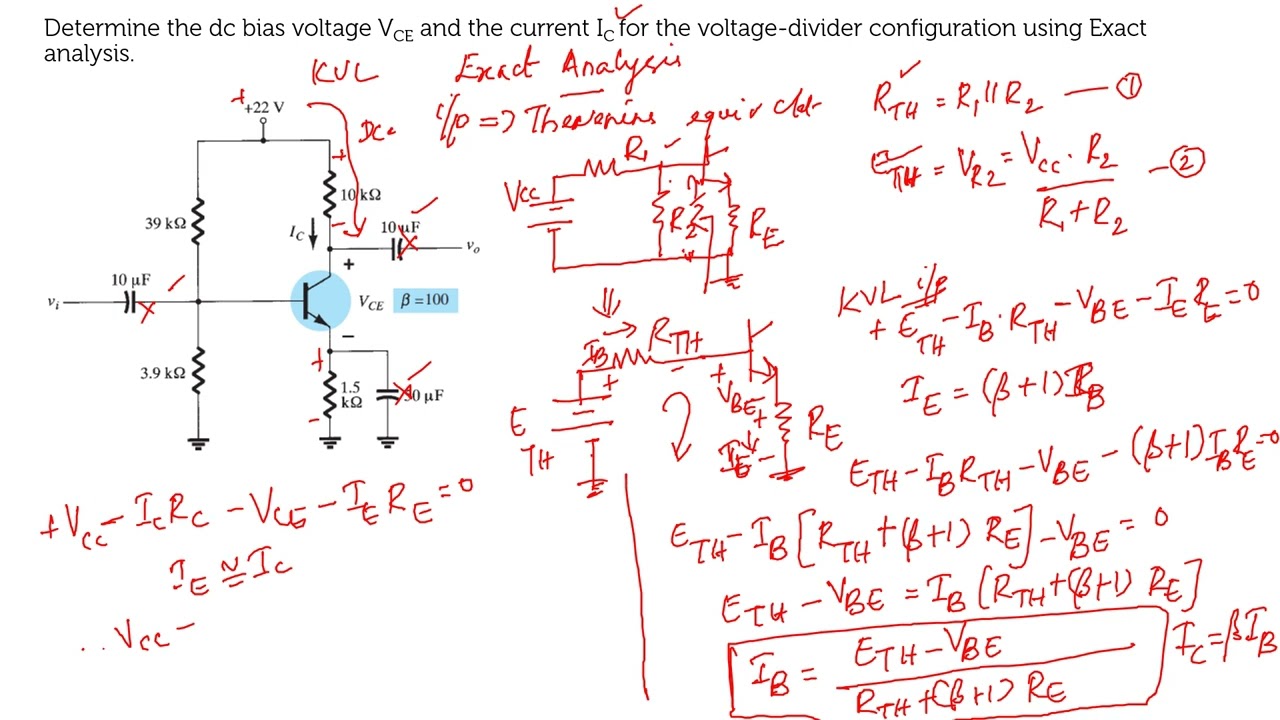 Determine the dc bias voltage V_CE and the current I_C for the voltage-divider configuration using Exact
analysis.
KVL
Exact Analysis
i/p => Thevenins equiv ckt
R_TH = R_1 || R_2 — ①
E_TH = V_R2 = V_CC · R_2 / R_1 + R_2 — ②
+ +22 V
DC
+
10 kΩ
-
39 kΩ
I_C
10 µF
v_o
+
10 µF
v_i
V_CE
β = 100
-
3.9 kΩ
+
1.5
kΩ
-
50 µF
V_CC
R_1
R_2
R_E
I_B
R_TH
+ -
+
V_BE
E
TH
+
I_E -
R_E
KVL i/p
+ E_TH - I_B · R_TH - V_BE - I_E R_E = 0
I_E = (β+1) I_B
E_TH - I_B R_TH - V_BE - (β+1) I_B R_E = 0
E_TH - I_B [R_TH + (β+1) R_E] - V_BE = 0
E_TH - V_BE = I_B [R_TH + (β+1) R_E]
I_B = E_TH - V_BE / R_TH + (β+1) R_E
I_C = β I_B
+V_CC - I_C R_C - V_CE - I_E R_E = 0
I_E ≅ I_C
.. V_CC -